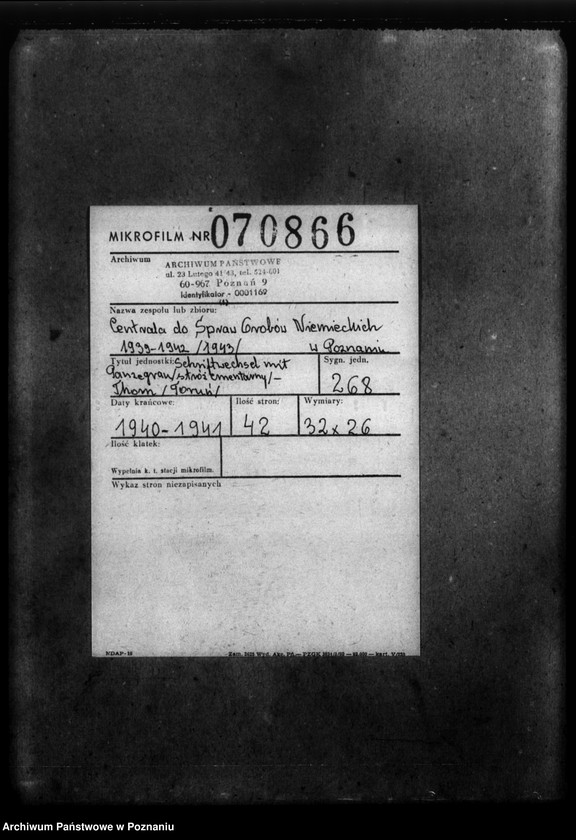 MIKROFILM NR 070866
Archiwum
ARCHIWUM PAŃSTWOWE
ul. 23 Lutego 41/43, tel. 524-601
60-967 Poznań 9
Identyfikator - 0001162
Nazwa zespołu lub zbioru:
Centrala do Spraw Grobów Niemieckich
1939-1942 /1943/ w Poznaniu
Tytuł jednostki: Schriftwechsel mit
/stróż cmentarny/-
Thorn /Toruń/
Sygn. jedn.
268
Daty krańcowe:
1940-1941
Ilość stron:
42
Wymiary:
32 x 26
Ilość klatek:
Wypełnia k. t. stacji mikrofilm.
Wykaz stron niezapisanych
NDAP-
Archiwum Państwowe w Poznaniu